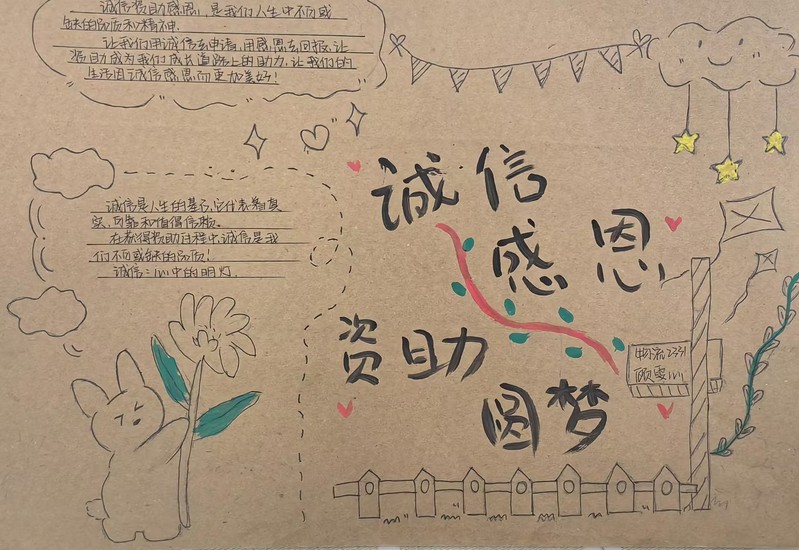 诚信资助感恩，是我们人生中不可或
缺的品质和精神.
让我们用诚信去申请，用感恩去回报，让
资助成为我们成长道路上的助力，让我们的
生活因诚信感恩而更加美好！
诚信是人生的基石，它代表着真
实，可靠和值得信赖。
在获得资助过程中，诚信是我
们不可或缺的品质！
诚信：心中的明灯.
诚信
感恩
资助
圆梦
物流2331